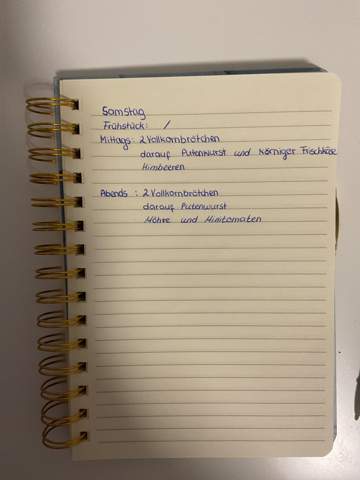 Samstag
Frühstück: /
Mittags: 2 Vollkornbrötchen
darauf Putenwurst und körniger Frischkäse
Himbeeren
Abends : 2 Vollkornbrötchen
darauf Putenwurst
Möhre und Minitomaten